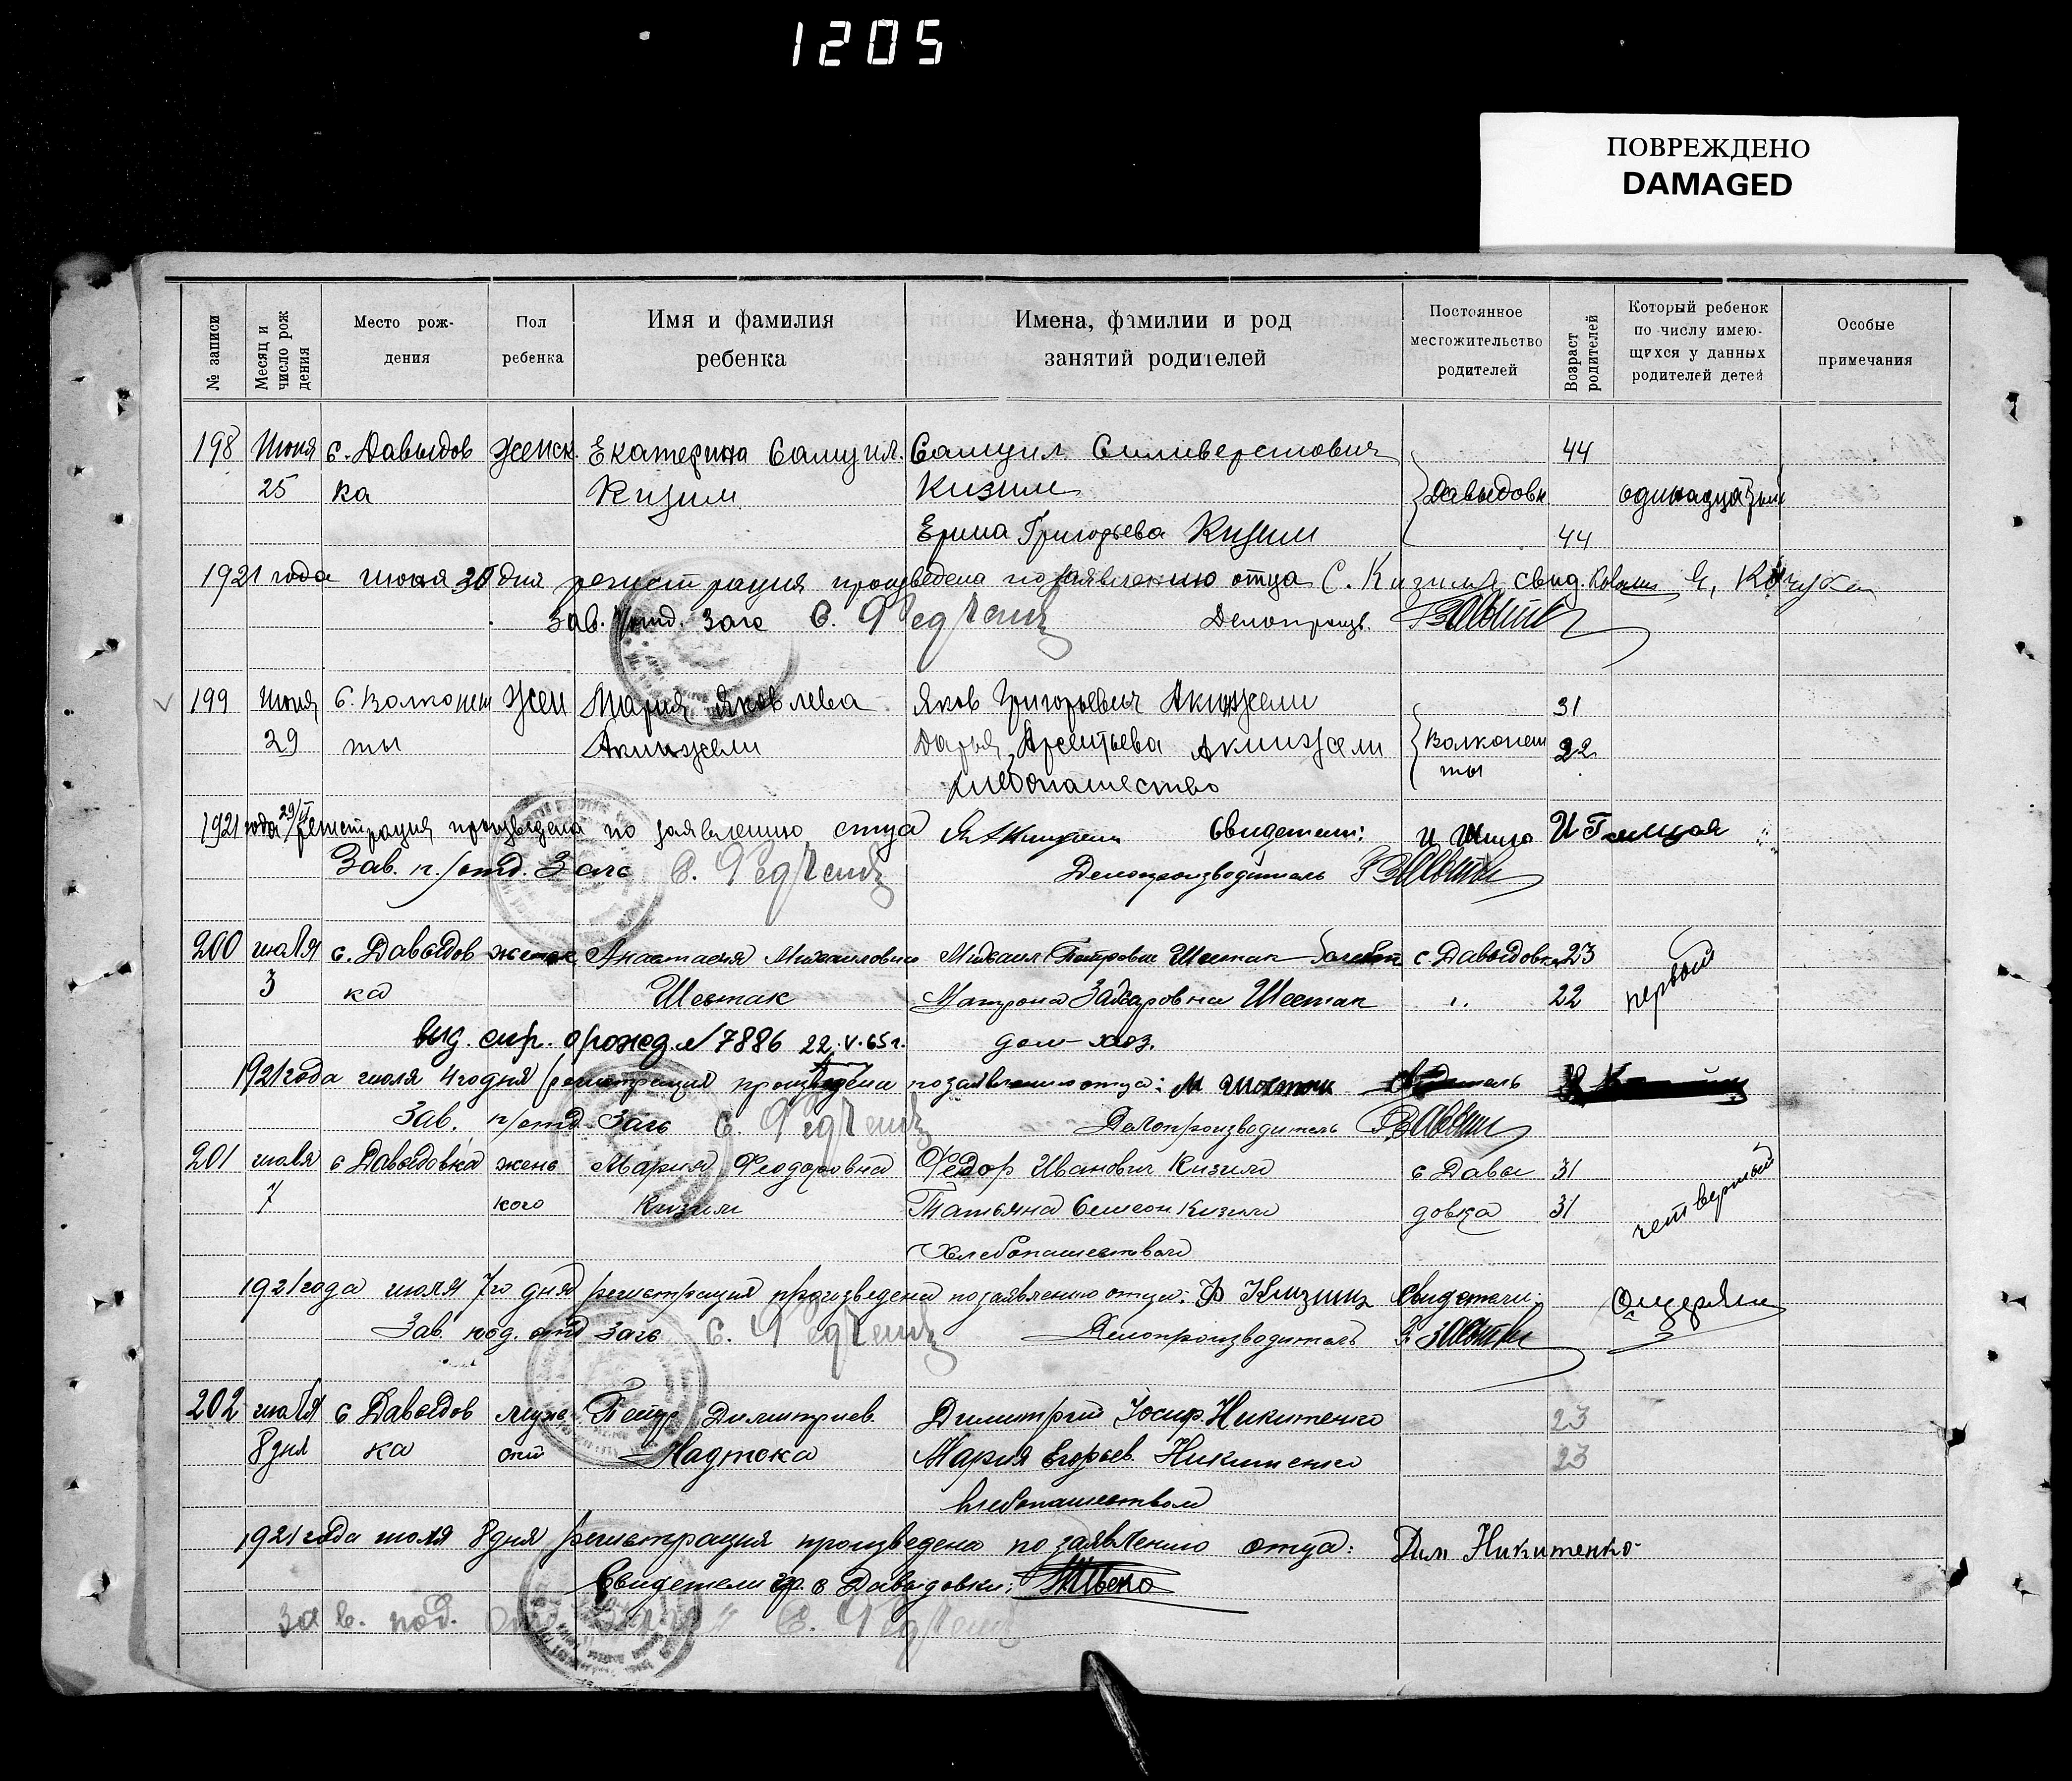 1205
ПОВРЕЖДЕНО
DAMAGED
№ записи
Месяц и число рождения
Место рождения
Пол ребенка
Имя и фамилия ребенка
Имена, фамилии и род занятий родителей
Постоянное местожительство родителей
Возраст родителей
Который ребенок по числу имеющихся у данных родителей детей
Особые примечания
198 Июня с. Давыдов женск. Екатерина Самуил. Самуил Силиверстович 44
25 ка Кизим Кизим Давыдовк одинадцатый
Григорьева Кизим 44
1921 года июня 30 дня регистрация произведена по заявлению отца С. Кизима свид.
Зав. п/отд. Загс С. Делопроизв.
199 Июня с. Волконеш жен Мария Яковлева Яков Григорьевич Акинжели 31
29 ты Акинжели Дарья Арсентьева Акинжели Волконеш 22
хлебопашество ты
1921 года 29/VI регистрация произведена по заявлению отца Свидетели:
Зав. п./отд. Загс С. Делопроизводитель
200 июля с. Давыдов женск Анастасия Михаиловна Михаил Петрович Шестак с. Давыдовка 23 первый
3 ка Шестак Матрона Захаровна Шестак " 22
выд. спр. о рожд. № 7886 22.V.65 г. дом-хоз.
1921 года июля 4 го дня регистрация произведена по заявлению отца: М Шестак
Зав. п/отд Загс С. Делопроизводитель
201 июля с Давыдовка жень Мария Феодоровна Федор Иванович Кизим с Давы 31 четвертый
7 кого Кизим Татьяна Симеон Кизим довка 31
Хлебопашеством
1921 года июля 7го дня регистрация произведена по заявлению отца: Ф Кизим Свидетели:
Зав. под. отд Загс С. Делопроизводитель
202 июля с Давыдов мужс Петр Димитриев. Димитрий Иосиф. Никитенко 23
8 дня ка кий Надтока Мария Егорьев. Никитенко 23
Хлебопашеством
1921 года июля 8 дня регистрация произведена по заявлению отца: Дим Никитенко
Свидетели гр. с Давыдовки:
Зав. под. отд Загс С.